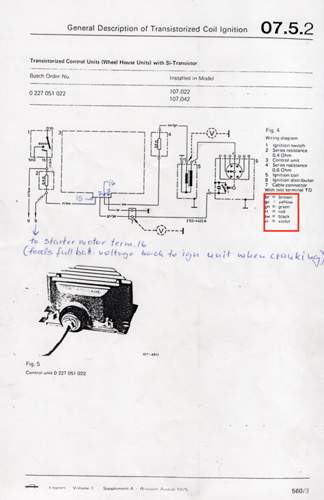 General Description of Transistorized Coil Ignition 07.5.2
Transistorized Control Units (Wheel House Units) with Si-Transistor
Bosch Order No. Installed in Model
0 227 051 022 107.022
107.042
Fig. 4
Wiring diagram
1 Ignition switch
2 Series resistance
0.4 Ohm
3 Control unit
4 Series resistance
0.6 Ohm
5 Ignition coil
6 Ignition distributor
7 Cable connector
With test terminal TD
br = brown
ge = yellow
gn = green
rt = red
sw = black
vi = violet
16
15
to starter motor term. 16
(feeds full bat. voltage back to ign unit when cranking)
Fig. 5
Control unit 0 227 051 022
Volume 1 Supplement 4 August 1975
560/3